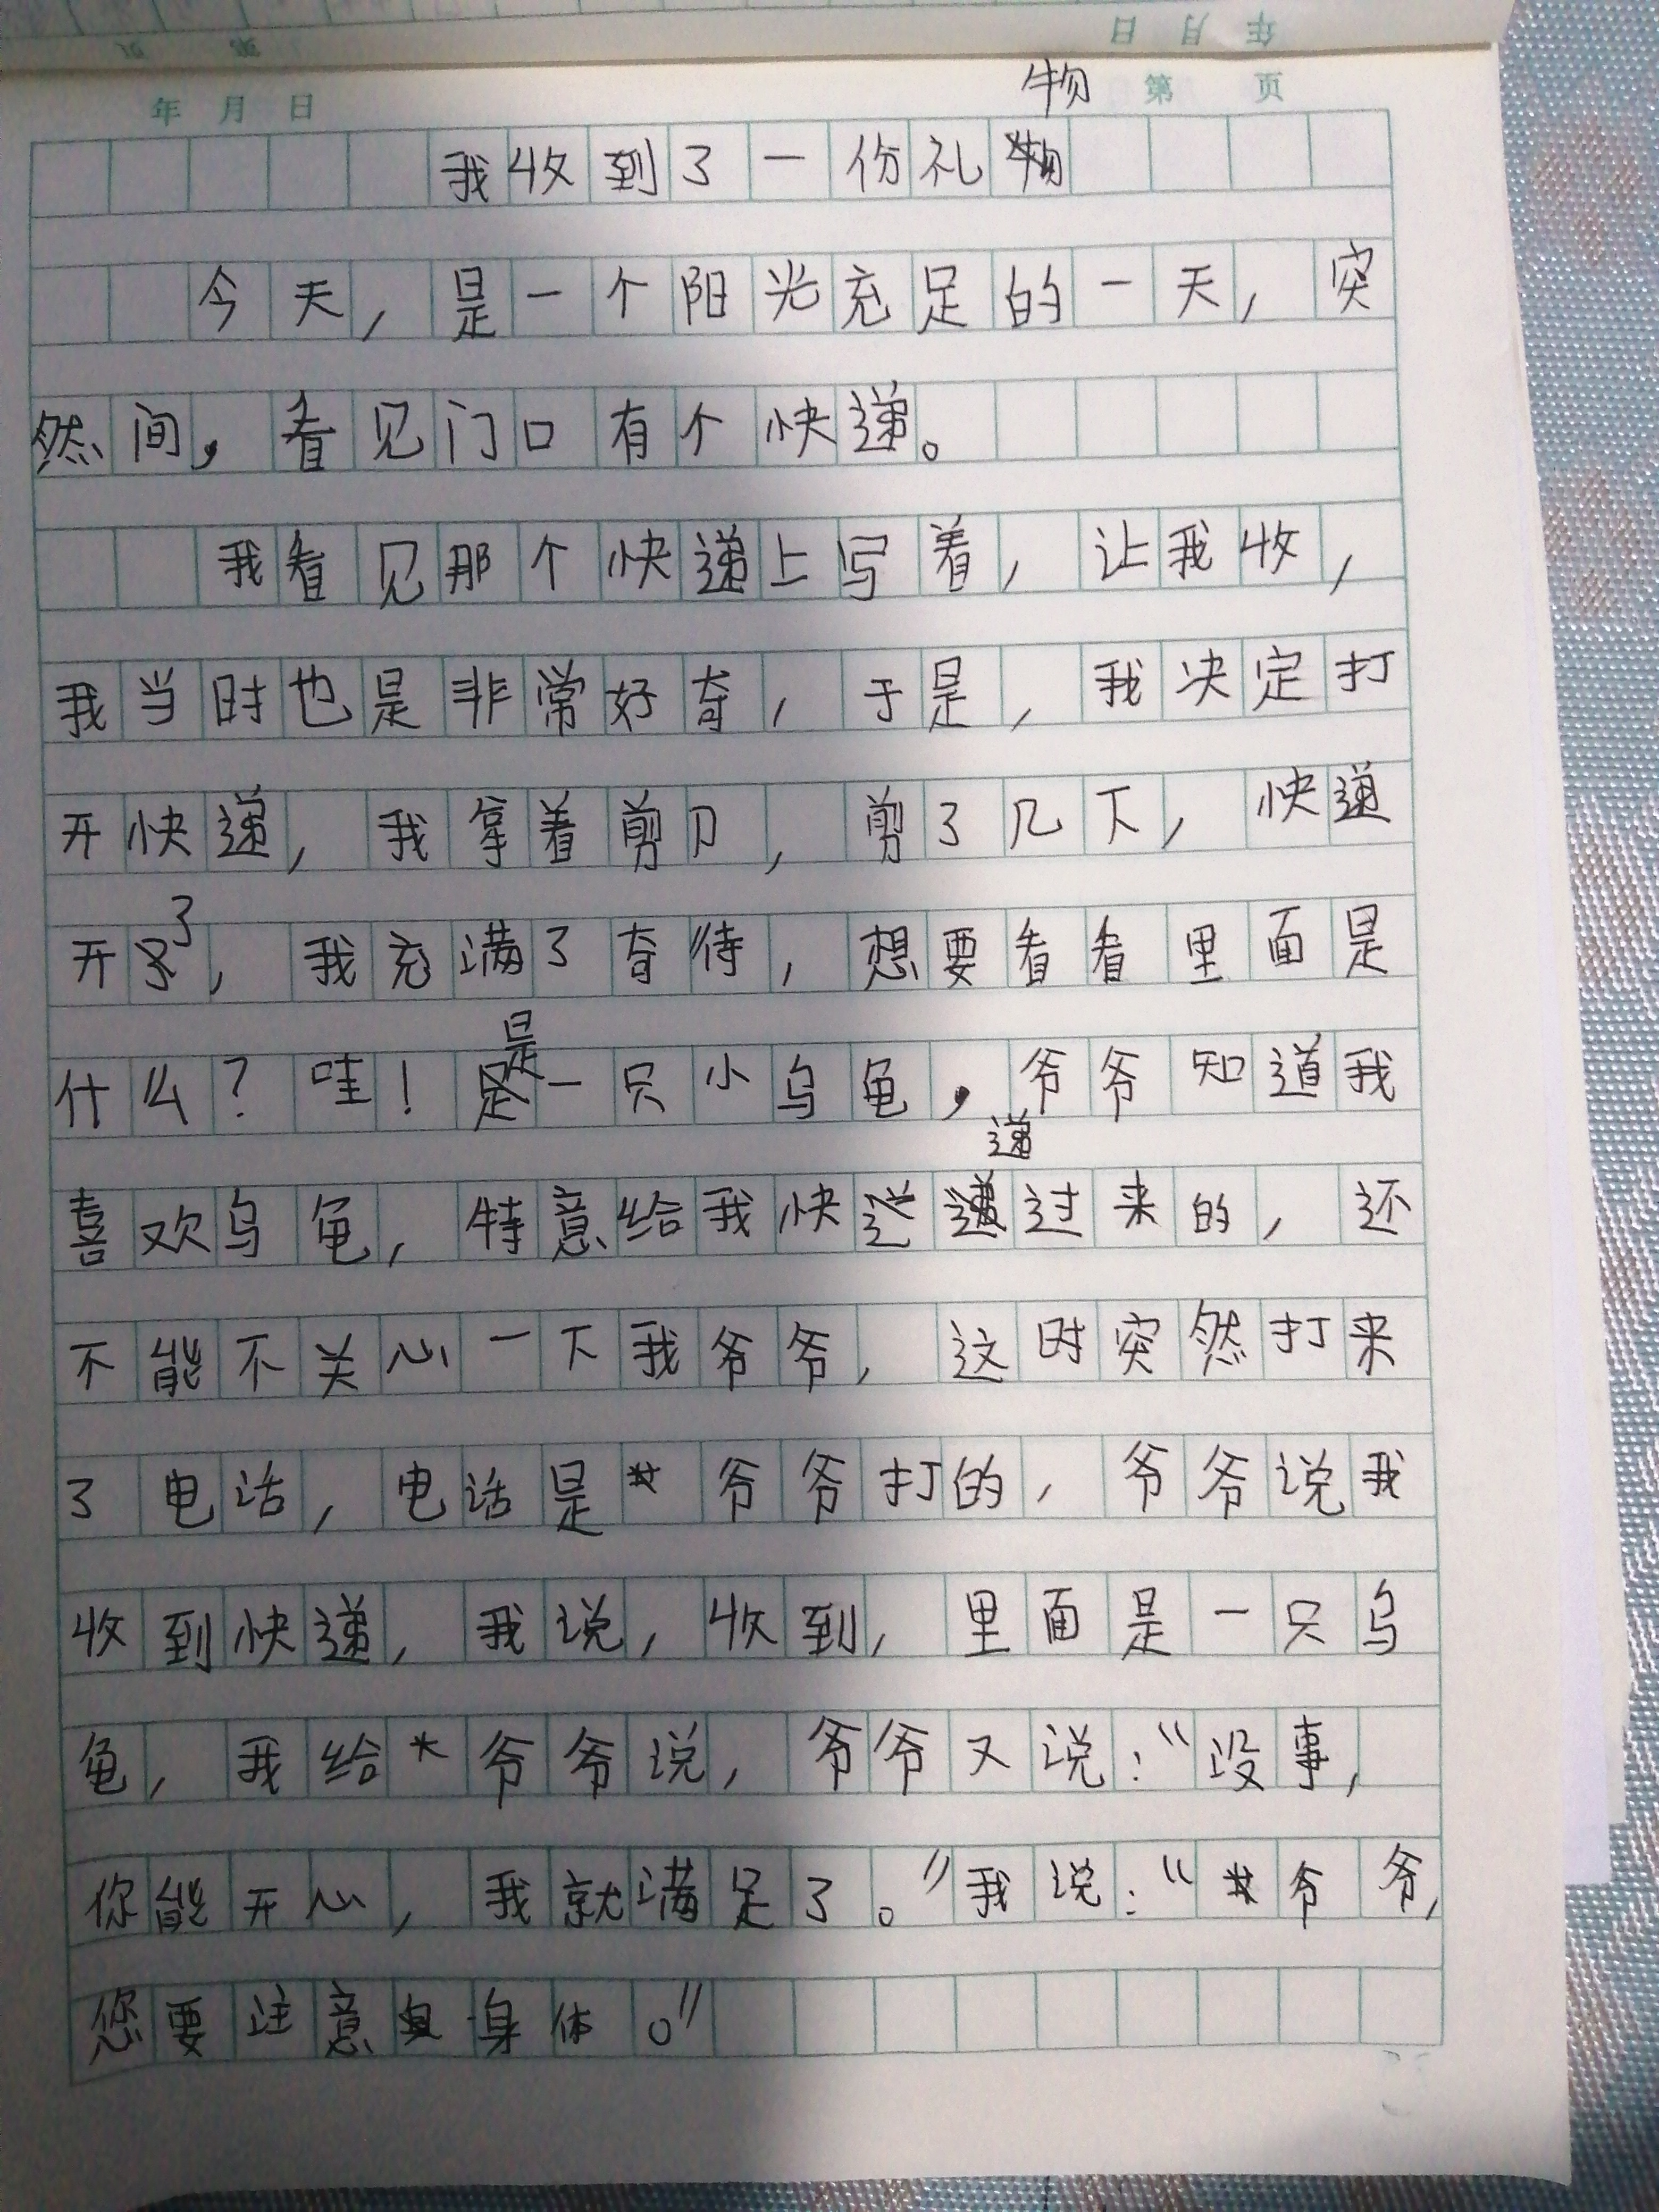 年 月 日
第 页
年 月 日 第 页
物
我收到了一份礼物
今天,是一个阳光充足的一天,突
然间,看见门口有个快递。
我看见那个快递上写着,让我收,
我当时也是非常好奇,于是,我决定打
开快递,我拿着剪刀,剪了几下,快递
开了,我充满了奇待,想要看看里面是
什么?哇!是一只小乌龟,爷爷知道我
喜欢乌龟,特意给我快递过来的,还
不能不关心一下我爷爷,这时突然打来
了电话,电话是爷爷打的,爷爷说我
收到快递,我说,收到,里面是一只乌
龟,我给爷爷说,爷爷又说:“没事,
你能开心,我就满足了。”我说:“爷爷,
您要注意身体。”